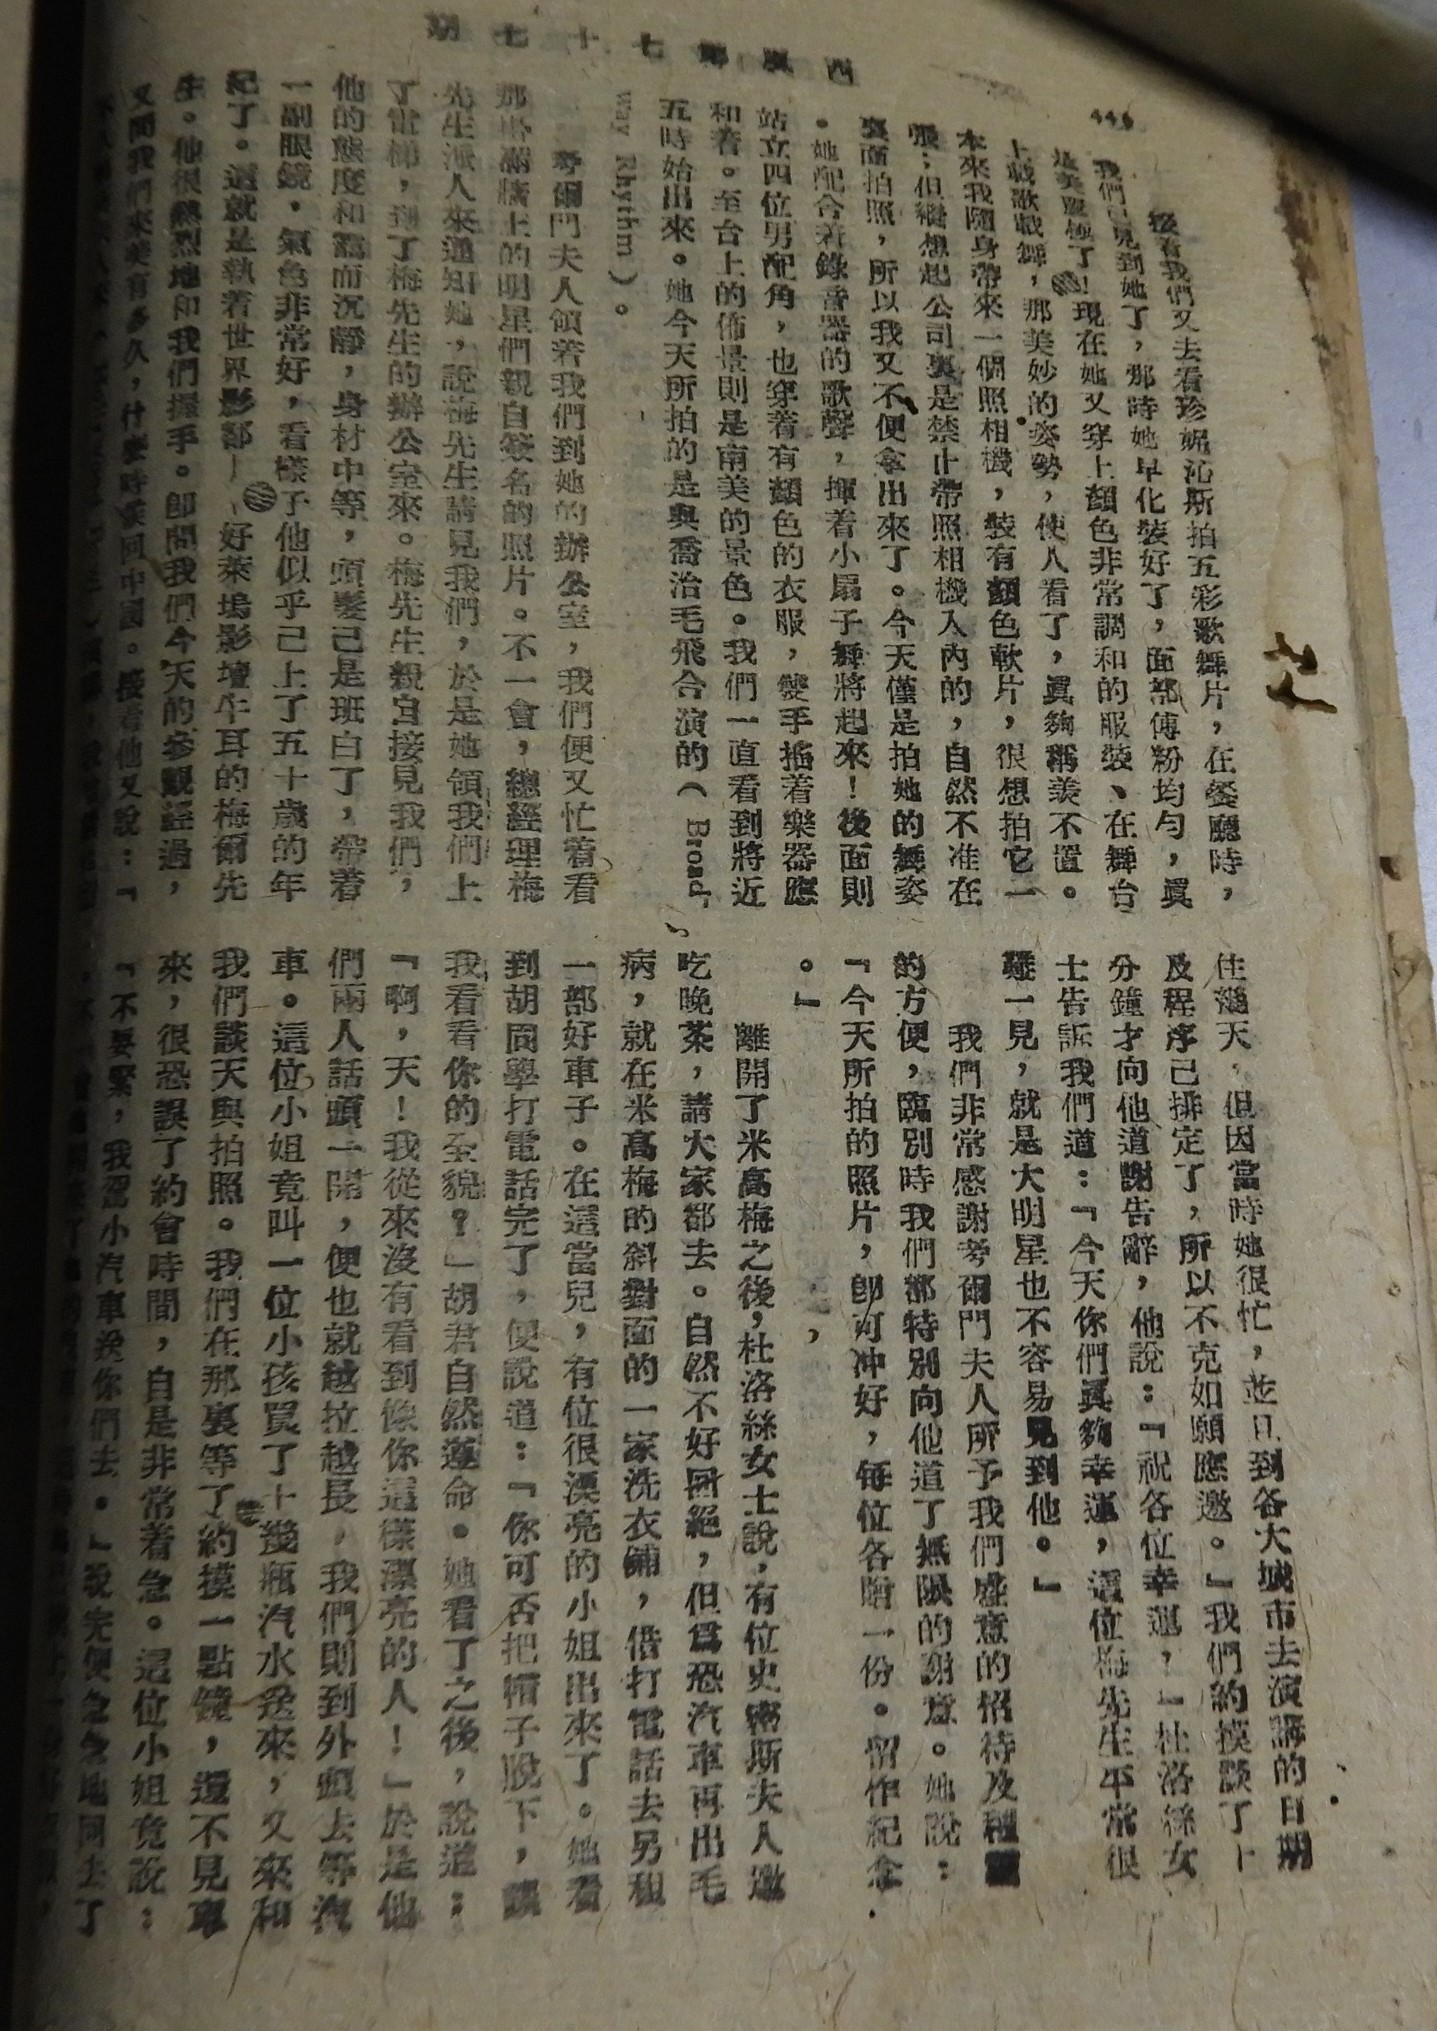 446
西風第七十七期
接着我們又去看珍妮沁斯拍五彩歌舞片，在餐廳時，
我們已見到她了，那時她早化裝好了，面部傅粉均勻，眞
是美麗極了！現在她又穿上顏色非常調和的服裝、在舞台
上載歌載舞，那美妙的姿勢，使人看了，眞夠稱羨不置。
本來我隨身帶來一個照相機，裝有顏色軟片，很想拍它一
張；但繼想起公司裏是禁止帶照相機入內的，自然不准在
裏面拍照，所以我又不便拿出來了。今天僅是拍她的舞姿
。她配合着錄音器的歌聲，揮着小扇子舞將起來！後面則
站立四位男配角，也穿着有顏色的衣服，雙手搖着樂器應
和着。至台上的佈景則是南美的景色。我們一直看到將近
五時始出來。她今天所拍的是與喬治毛飛合演的（ Broad-
way Rhythm ）。
考爾門夫人領着我們到她的辦公室，我們便又忙着看
那些滿牆上的明星們親自簽名的照片。不一會，總經理梅
先生派人來通知她，說梅先生請見我們，於是她領我們上
了電梯，到了梅先生的辦公室來。梅先生親自接見我們，
他的態度和靄而沉靜，身材中等，頭髮已是班白了，帶着
一副眼鏡．氣色非常好，看樣子他似乎己上了五十歲的年
紀了。這就是執着世界影都——好萊塢影壇牛耳的梅爾先
生。他很熱烈地和我們握手。卽問我們今天的參觀經過，
又問我們來美有多久，什麼時候回中國。接着他又說：『
住幾天，但因當時她很忙，並且到各大城市去演講的日期
及程序己排定了，所以不克如願應邀。』我們約摸談了十
分鐘才向他道謝告辭，他說：『祝各位幸運，』杜洛絲女
士告訴我們道：『今天你們眞夠幸運，這位梅先生平常很
難一見，就是大明星也不容易見到他。』
我們非常感謝考爾門夫人所予我們盛意的招待及種種
的方便，臨別時我們都特別向他道了無限的謝意。她說：
『今天所拍的照片，卽可冲好，每位各贈一份。留作紀念
。』
離開了米高梅之後，杜洛絲女士說，有位史密斯夫人邀
吃晚茶，請大家都去。自然不好囘絕，但爲恐汽車再出毛
病，就在米高梅的斜對面的一家洗衣鋪，借打電話去另租
一部好車子。在這當兒，有位很漂亮的小姐出來了。她看
到胡同學打電話完了，便說道：『你可否把帽子脫下，讓
我看看你的全貌？』胡君自然遵命。她看了之後，說道：
『啊，天！我從來沒有看到像你這樣漂亮的人！』於是他
們兩人話頭一開，便也就越拉越長，我們則到外頭去等汽
車。這位小姐竟叫一位小孩買了十幾瓶汽水送來，又來和
我們談天與拍照。我們在那裏等了約摸一點鐘，還不見車
來，很恐誤了約會時間，自是非常着急。這位小姐竟說：
『不要緊，我駕小汽車送你們去．』說完便急急地回去了